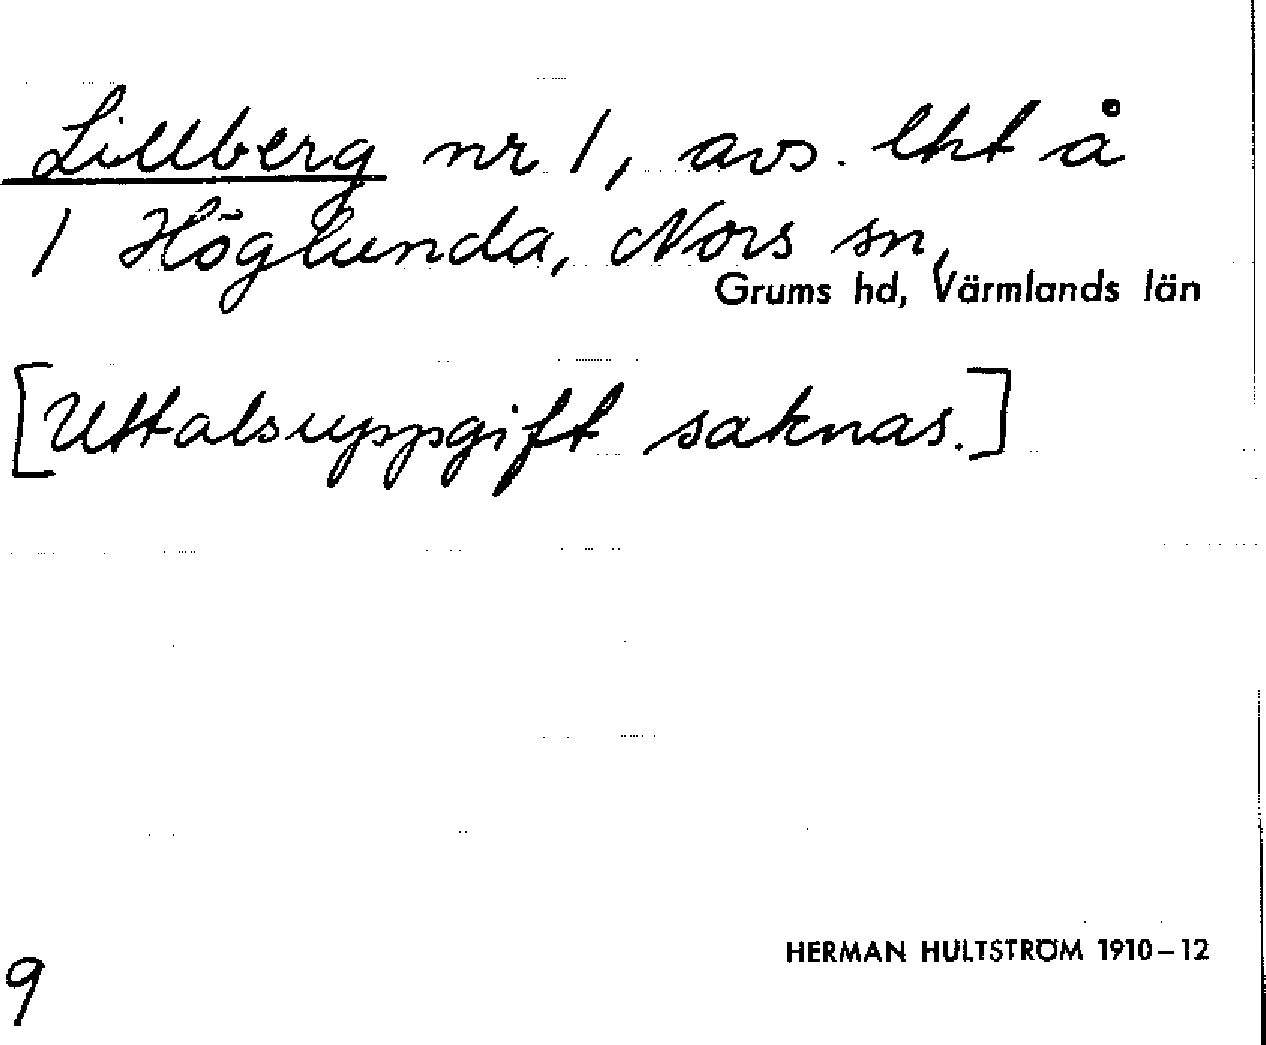 Lillberg nr 1, avs. lht å
1 Höglunda, Nors sn,
Grums hd, Värmlands län
[Uttalsuppgift saknas.]
HERMAN HULTSTRÖM 1910–12
9